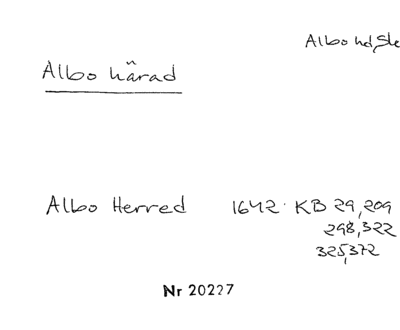 Albo hd, Sk
Albo härad
Albo Herred 1642. KB 29, 209
298, 322
325, 372
Nr 20227